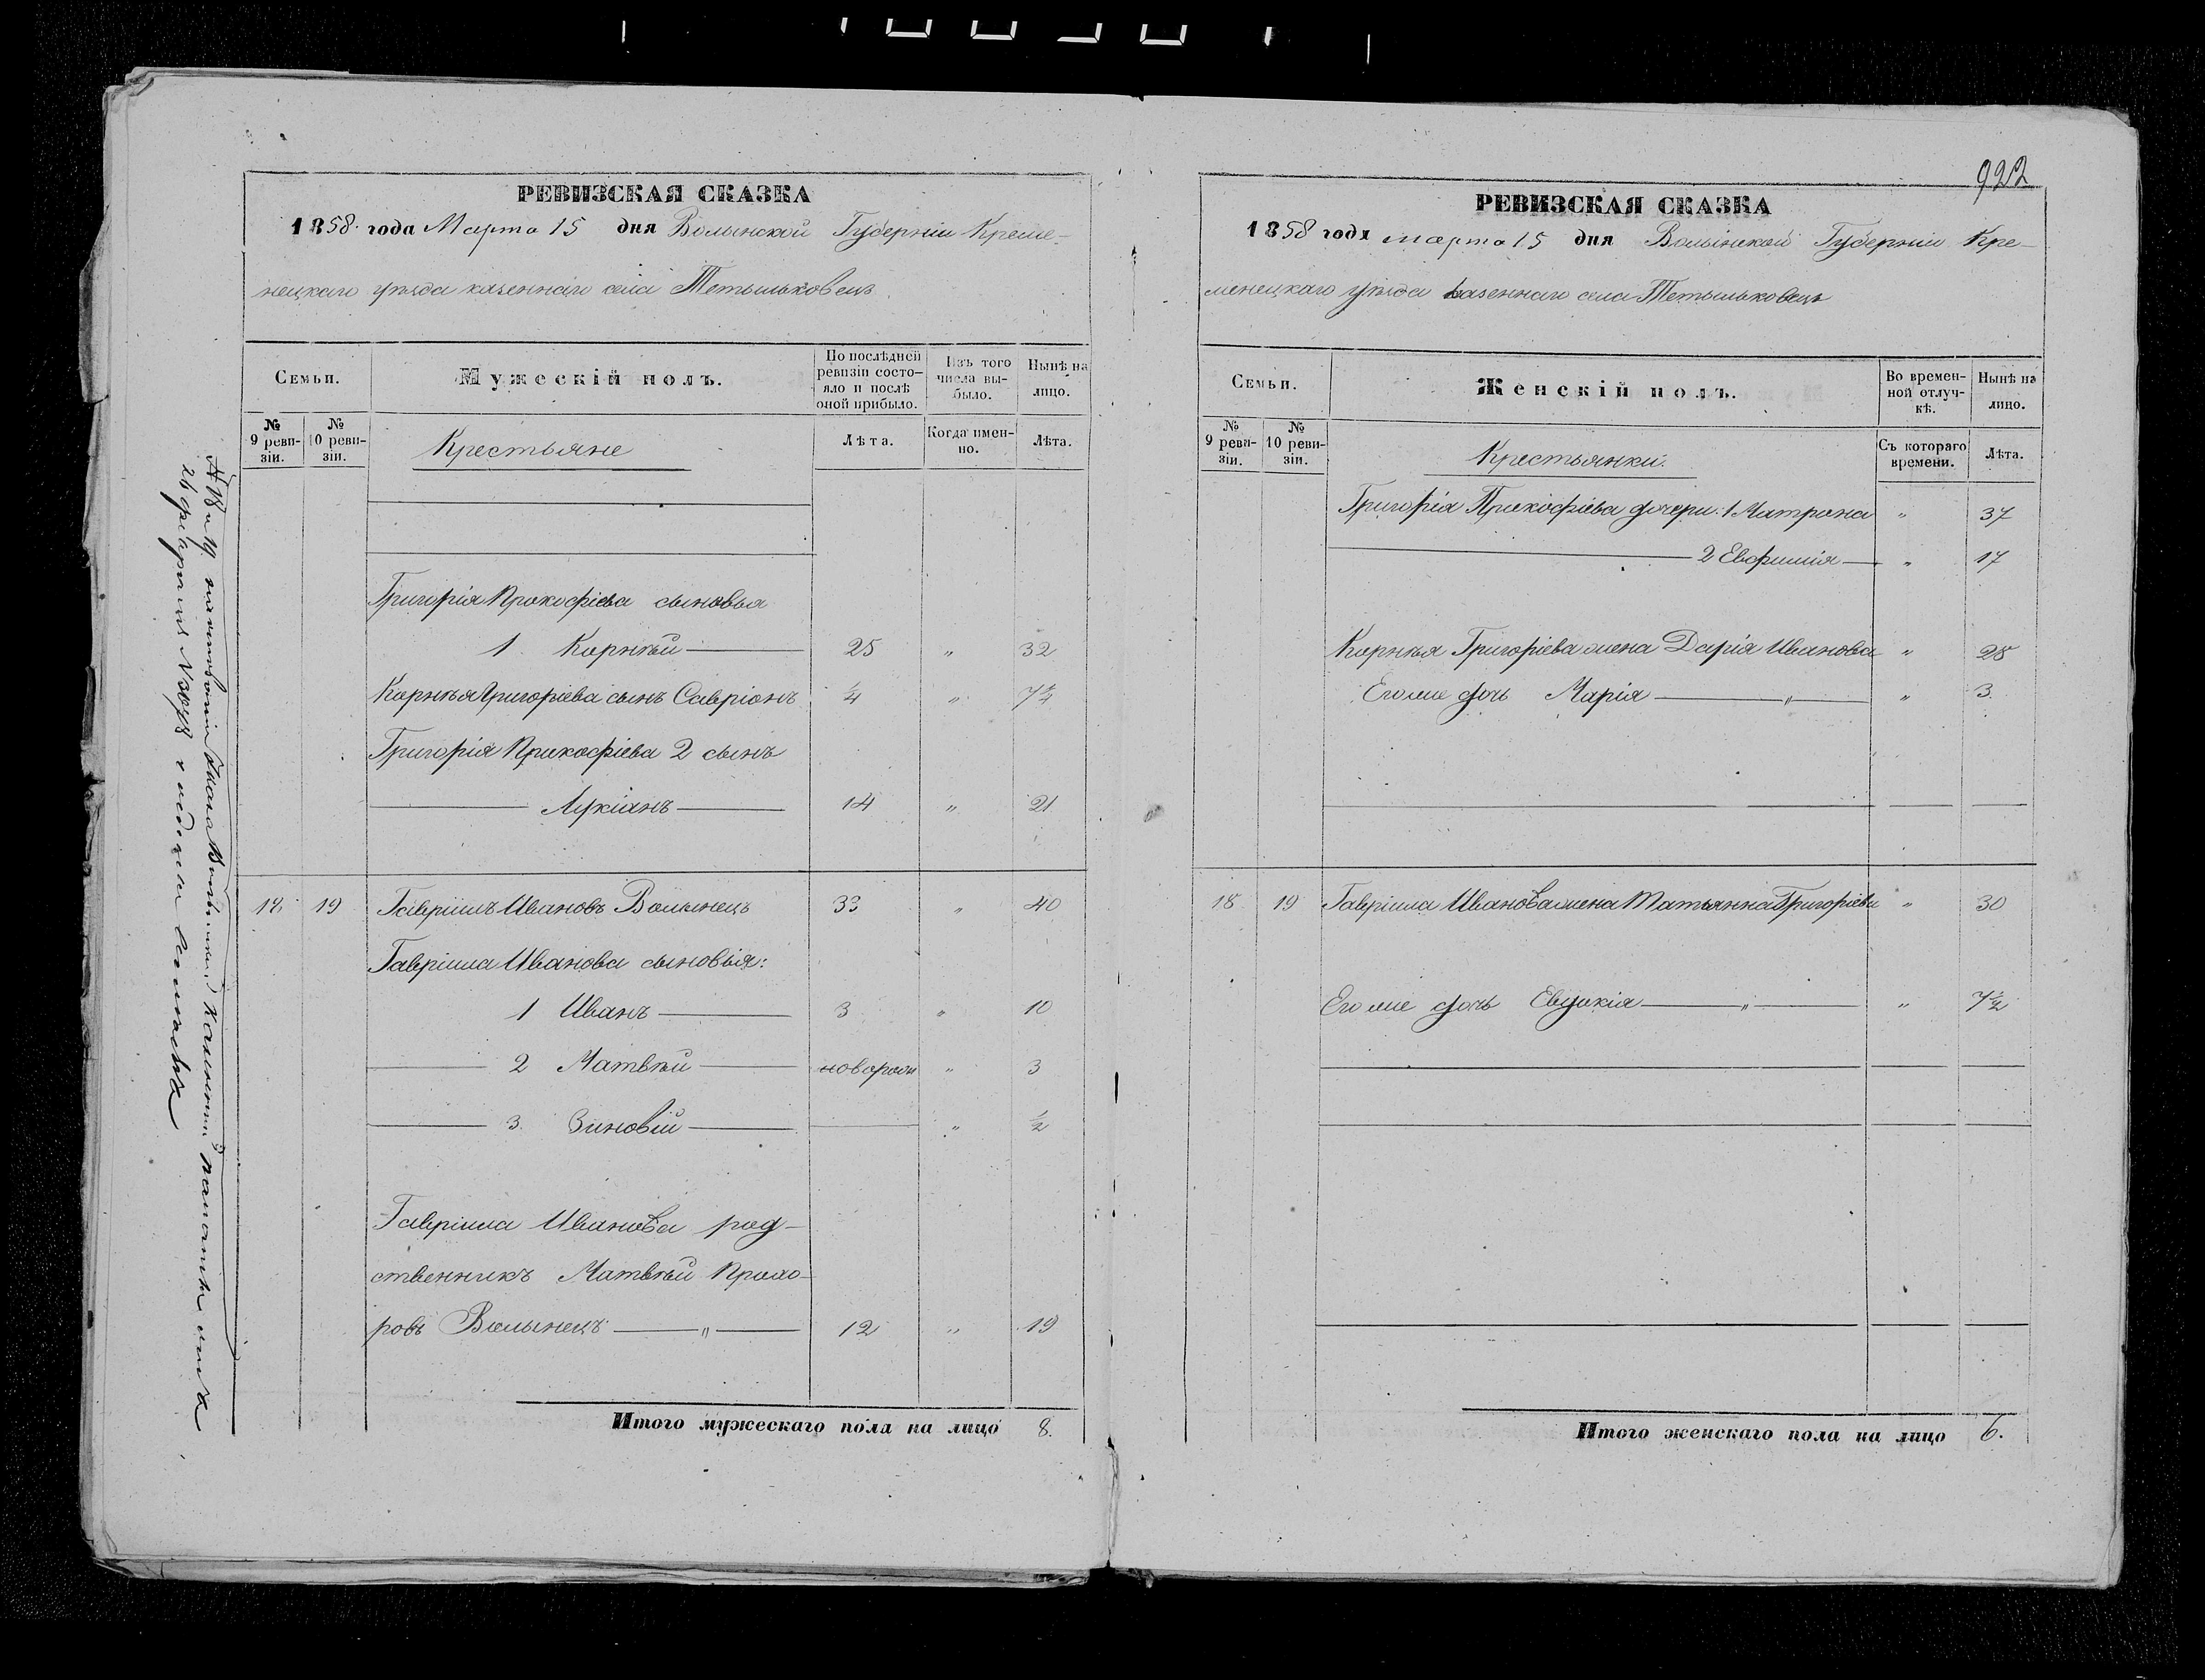 РЕВИЗСКАЯ СКАЗКА
1858 года Марта 15 дня Волынской Губерніи Креме-
нецкаго уѣзда казеннаго села Тетыльковецъ
Семьи.
Мужескій полъ.
По послѣдней ревизіи состо-яло и послѣ оной прибыло.
Изъ того числа вы-было.
Нынѣ на лицо.
№ 9 реви-зіи.
№ 10 реви-зіи.
Крестьяне
Лѣта.
Когда имен-но.
Лѣта.
Григорія Прокофіева сыновья
1 Корнѣй 25 " 32
Корнѣя Григоріева сынъ Савріонъ ¼ " 7¼
Григорія Прокофіева 2 сынъ
Лукіанъ 14 " 21
18 19 Гавріилъ Ивановъ Волынецъ 33 " 40
Гавріила Иванова сыновья:
1 Иванъ 3 " 10
2 Матвѣй новорож " 3
3. Зиновій " ½
Гавріила Иванова род-
ственникъ Матвѣй Прохо-
ровъ Волынецъ " 12 " 19
Итого мужескаго пола на лицо 8.
922
РЕВИЗСКАЯ СКАЗКА
1858 года марта 15 дня Волынской Губерніи Кре-
менецкаго уѣзда казеннаго села Тетыльковецъ
Семьи.
Женскій полъ.
Во времен-ной отлуч-кѣ.
Нынѣ на лицо.
№ 9 реви-зіи.
№ 10 реви-зіи.
Крестьянки.
Съ котораго времени.
Лѣта.
Григорія Прокофіева дочери: 1 Матрона " 37
2 Евфимія " 17
Корнѣя Григоріева жена Дарія Иванова " 28
Его же дочь Марія " " 3
18 19 Гавріила Иванова жена Татьянна Григоріева " 30
Его же дочь Евдокія " " 7½
Итого женскаго пола на лицо 6.